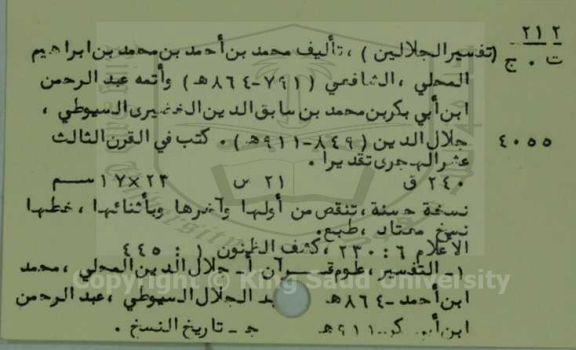 ٢١٢
ت . ج
(تفسير الجلالين) ، تأليف محمد بن أحمد بن محمد بن ابراهيم
المحلي ، الشافعي (٧٩١-٨٦٤هـ) وأتمه عبد الرحمن
ابن أبي بكر بن محمد بن سابق الدين الخضيري السيوطي ،
٤٠٥٥ جلال الدين (٨٤٩-٩١١هـ) . كتب في القرن الثالث
عشر الهجري تقديرا .
٢٤٠ ق ٢١ س ٢٣×١٧ سم
نسخة حسنة ، تنقص من أولها وآخرها وبأثنائها ، خطها
نسخ معتاد ، طبع .
الأعلام ٦ : ٢٣٠ ، كشف الظنون ١ : ٤٤٥
١- التفسير ، علوم قرآن أ- جلال الدين المحلي ، محمد
ابن أحمد -٨٦٤هـ الجلال السيوطي ، عبد الرحمن
ابن أبي بكر -٩١١هـ جـ- تاريخ النسخ .
Copyright © King Saud University